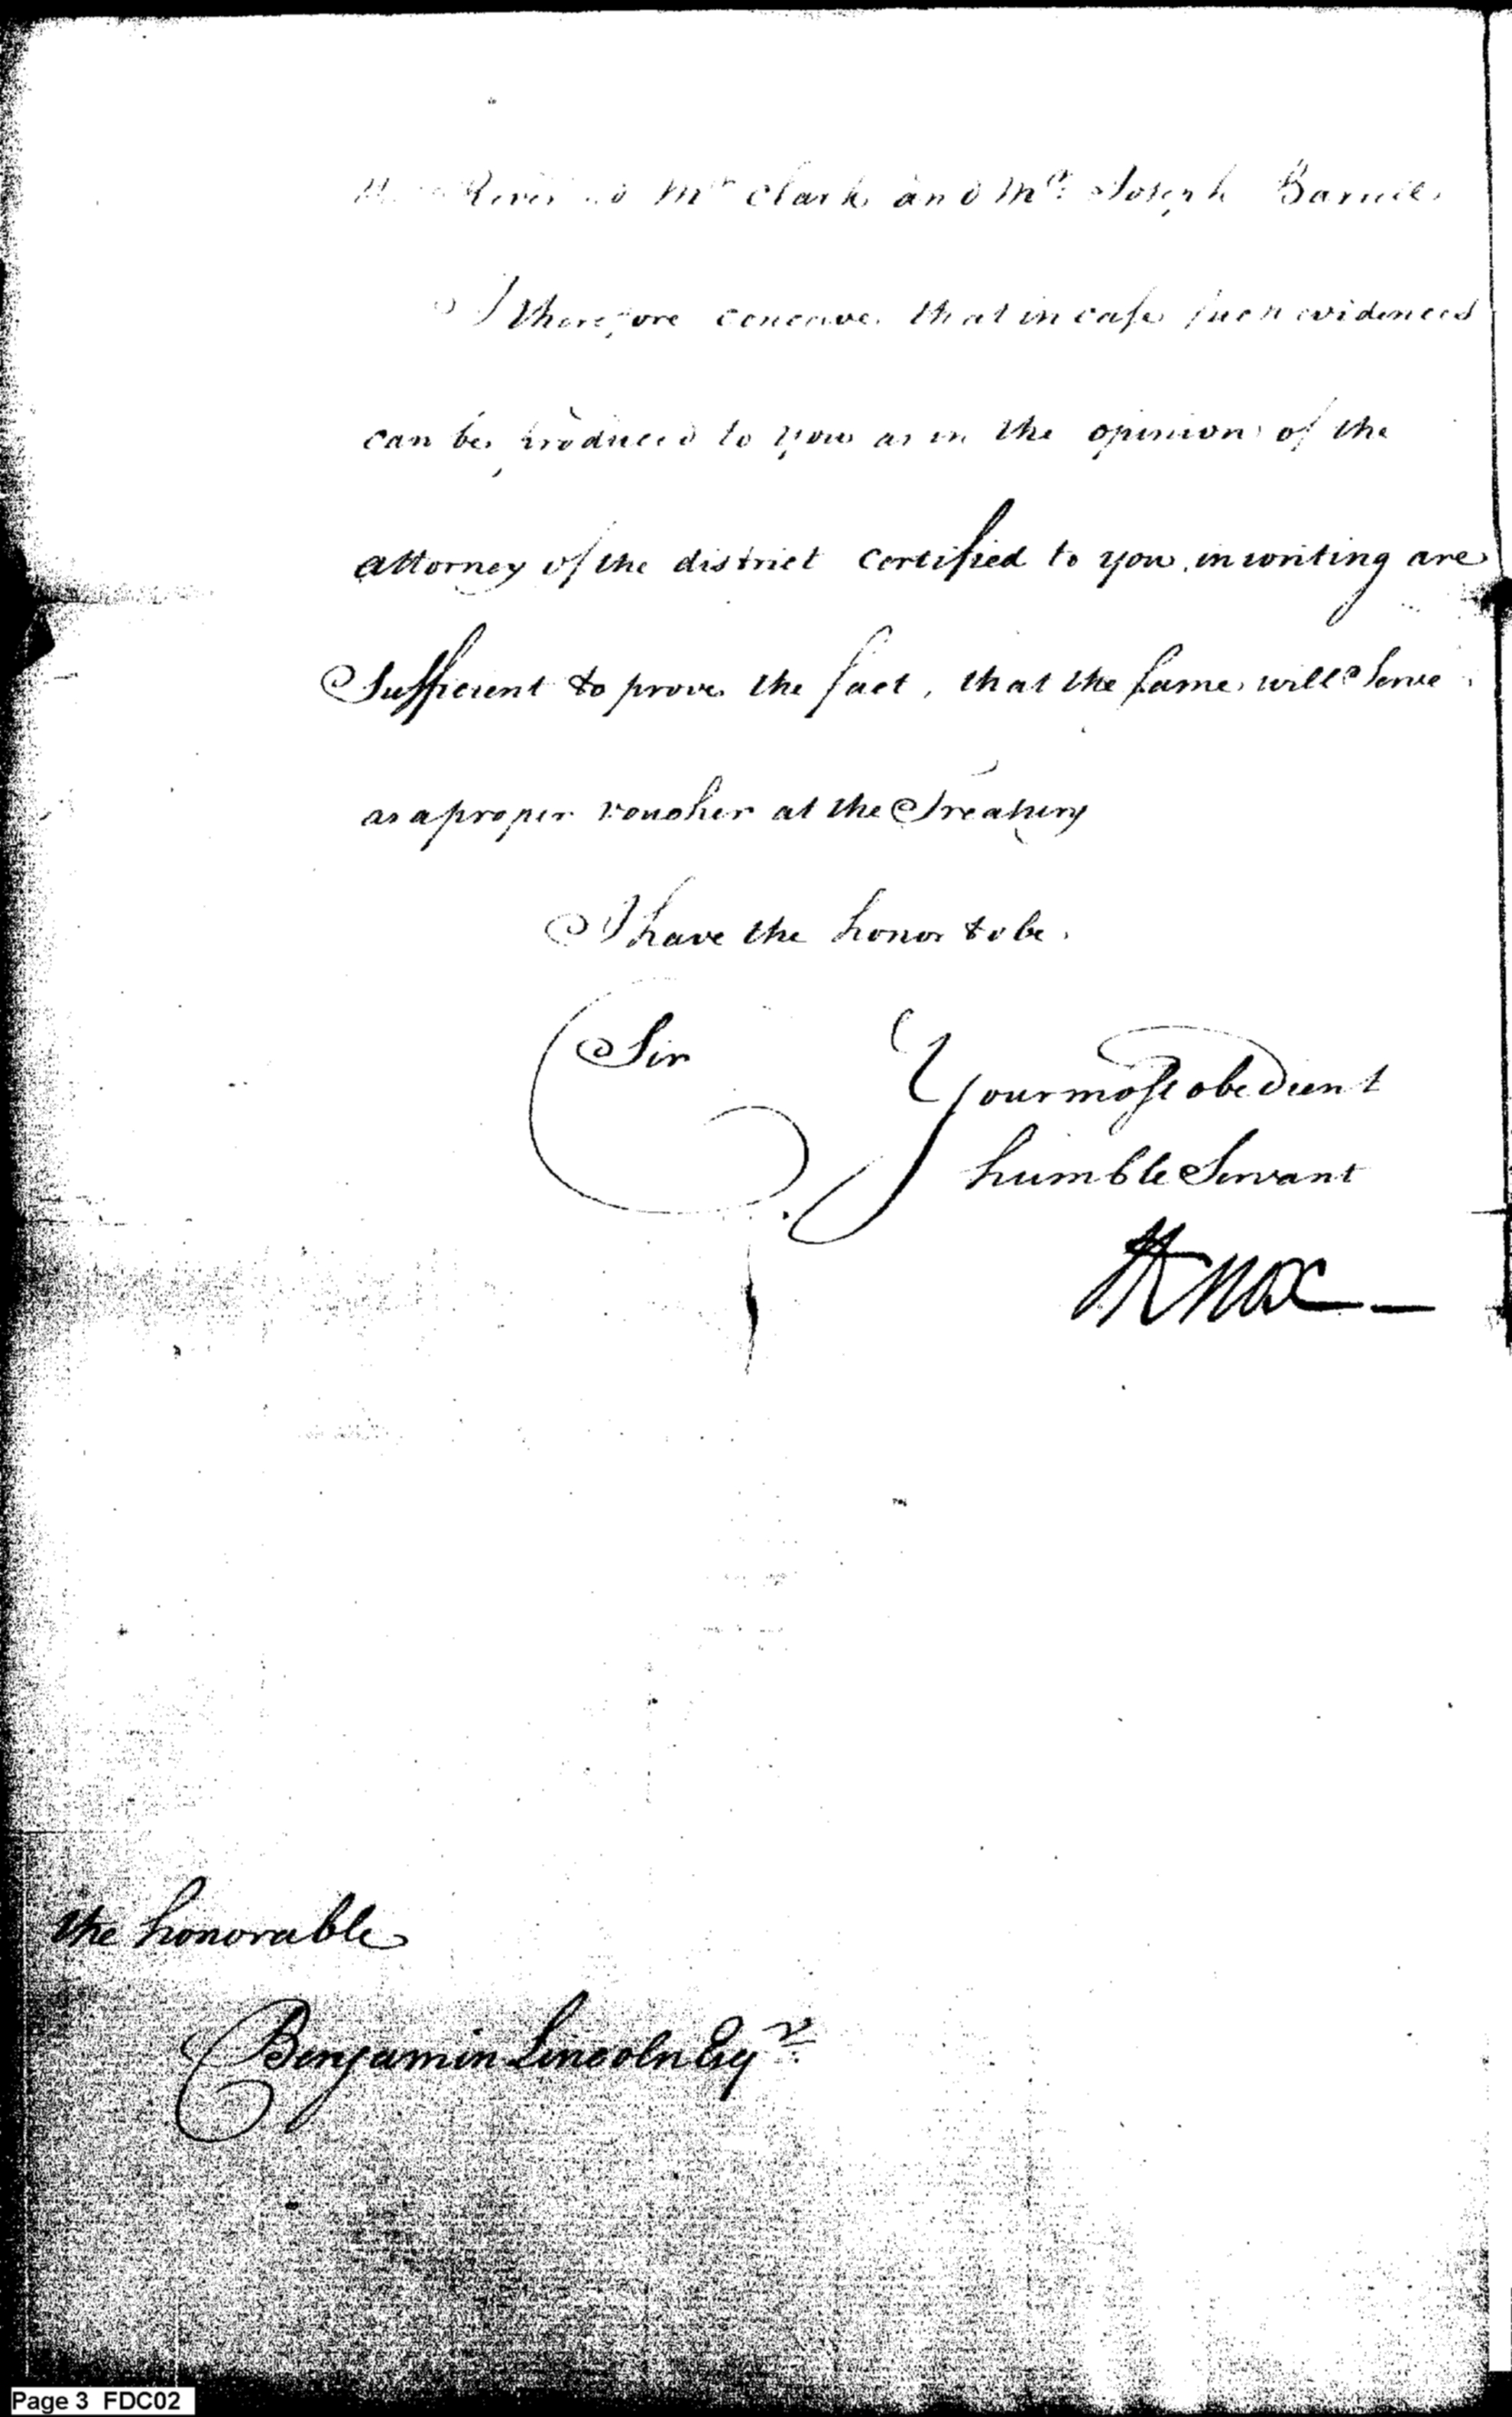 Reverend Mr Clark and Mr Joseph Barrell
I therefore conceive that in case such evidences
can be produced to you as in the opinion of the
attorney of the district certified to you in writing are
Sufficient to prove the fact, that the same will Serve
as a proper voucher at the Treasury
I have the honor to be
Sir
Your most obedient
humble Servant
HKnox
the honorable
Benjamin Lincoln Esqr
Page 3 FDC02